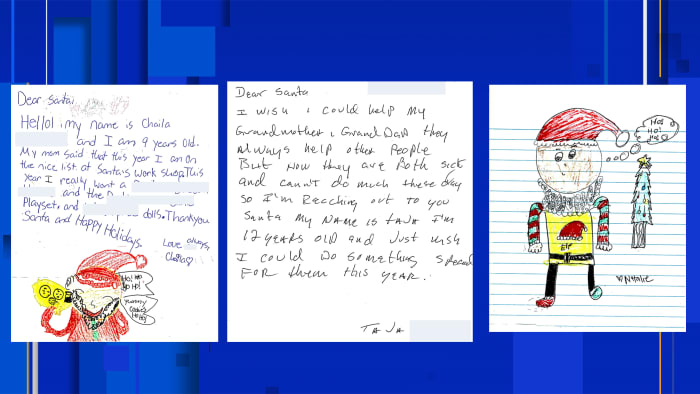 Dear Santa,
Hello! my name is Chaila
and I am 9 years old.
My mom said that this year I am on
the nice list at Santa's work shop. This
year I really want a
and the
Playset. and dolls. Thank you
Santa and Happy Holidays.
Love always,
Chaila
Ho! Ho
Ho Ho!
Yummy
Cookies
Dear Santa
I wish i could help my
Grandmother & GrandDad they
Always help other people
But now they are Both sick
and cann't do much these day
so I'm Reaching out to you
Santa my name is TaJa I'm
12 years old and Just wish
I could Do something special
FOR them this year.
TaJa
Ho!
Ho!
Ho!
Elf
Natalie